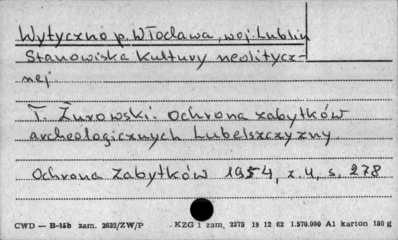 Wytyczno p. Włodawa, woj. Lublin
Stanowiska Kultury neolitycz-
nej.
T. Żurowski: Ochrona zabytków
archeologicznych Lubelszczyzny.
Ochrona Zabytków 1954, z. 4, s. 278
CWD — B-15b zam. 2632/ZW/P KZG 1 zam. 2375 19 12 62 1.570.000 A1 karton 180 g